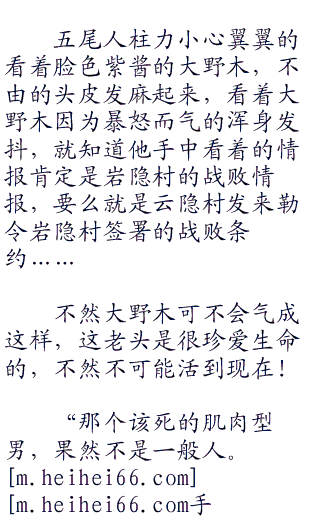 五尾人柱力小心翼翼的
看着脸色紫酱的大野木，不
由的头皮发麻起来，看着大
野木因为暴怒而气的浑身发
抖，就知道他手中看着的情
报肯定是岩隐村的战败情
报，要么就是云隐村发来勒
令岩隐村签署的战败条
约……
不然大野木可不会气成
这样，这老头是很珍爱生命
的，不然不可能活到现在！
“那个该死的肌肉型
男，果然不是一般人。
[m.heihei66.com]
[m.heihei66.com手